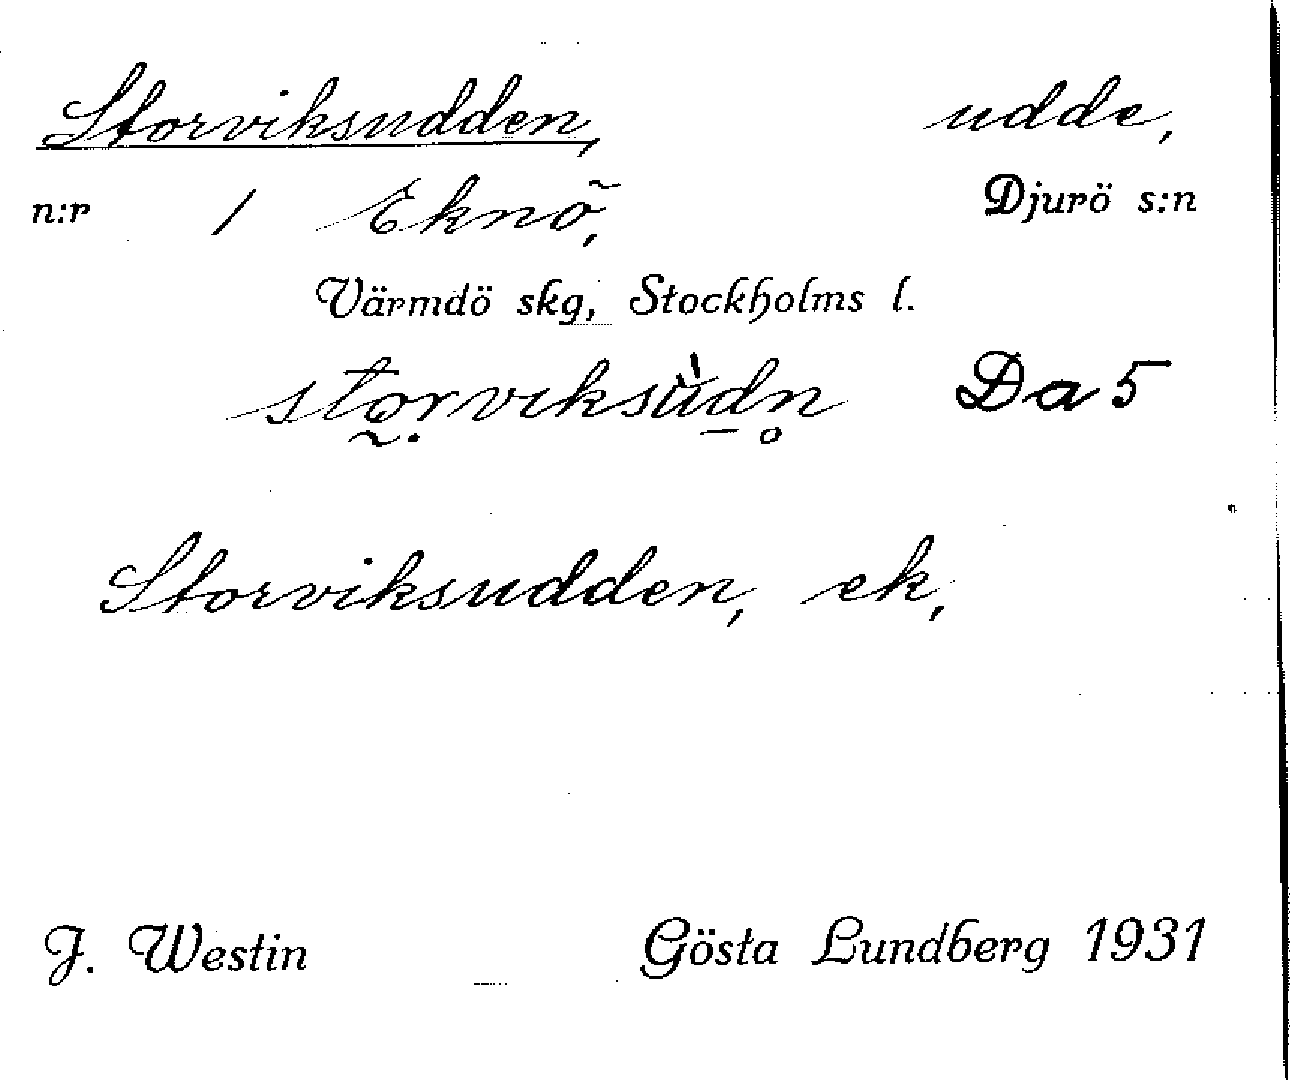 Storviksudden, udde,
n:r 1 Eknö, Djurö s:n
Värmdö skg, Stockholms l.
storviksùdn Da5
Storviksudden, ek,
J. Westin Gösta Lundberg 1931